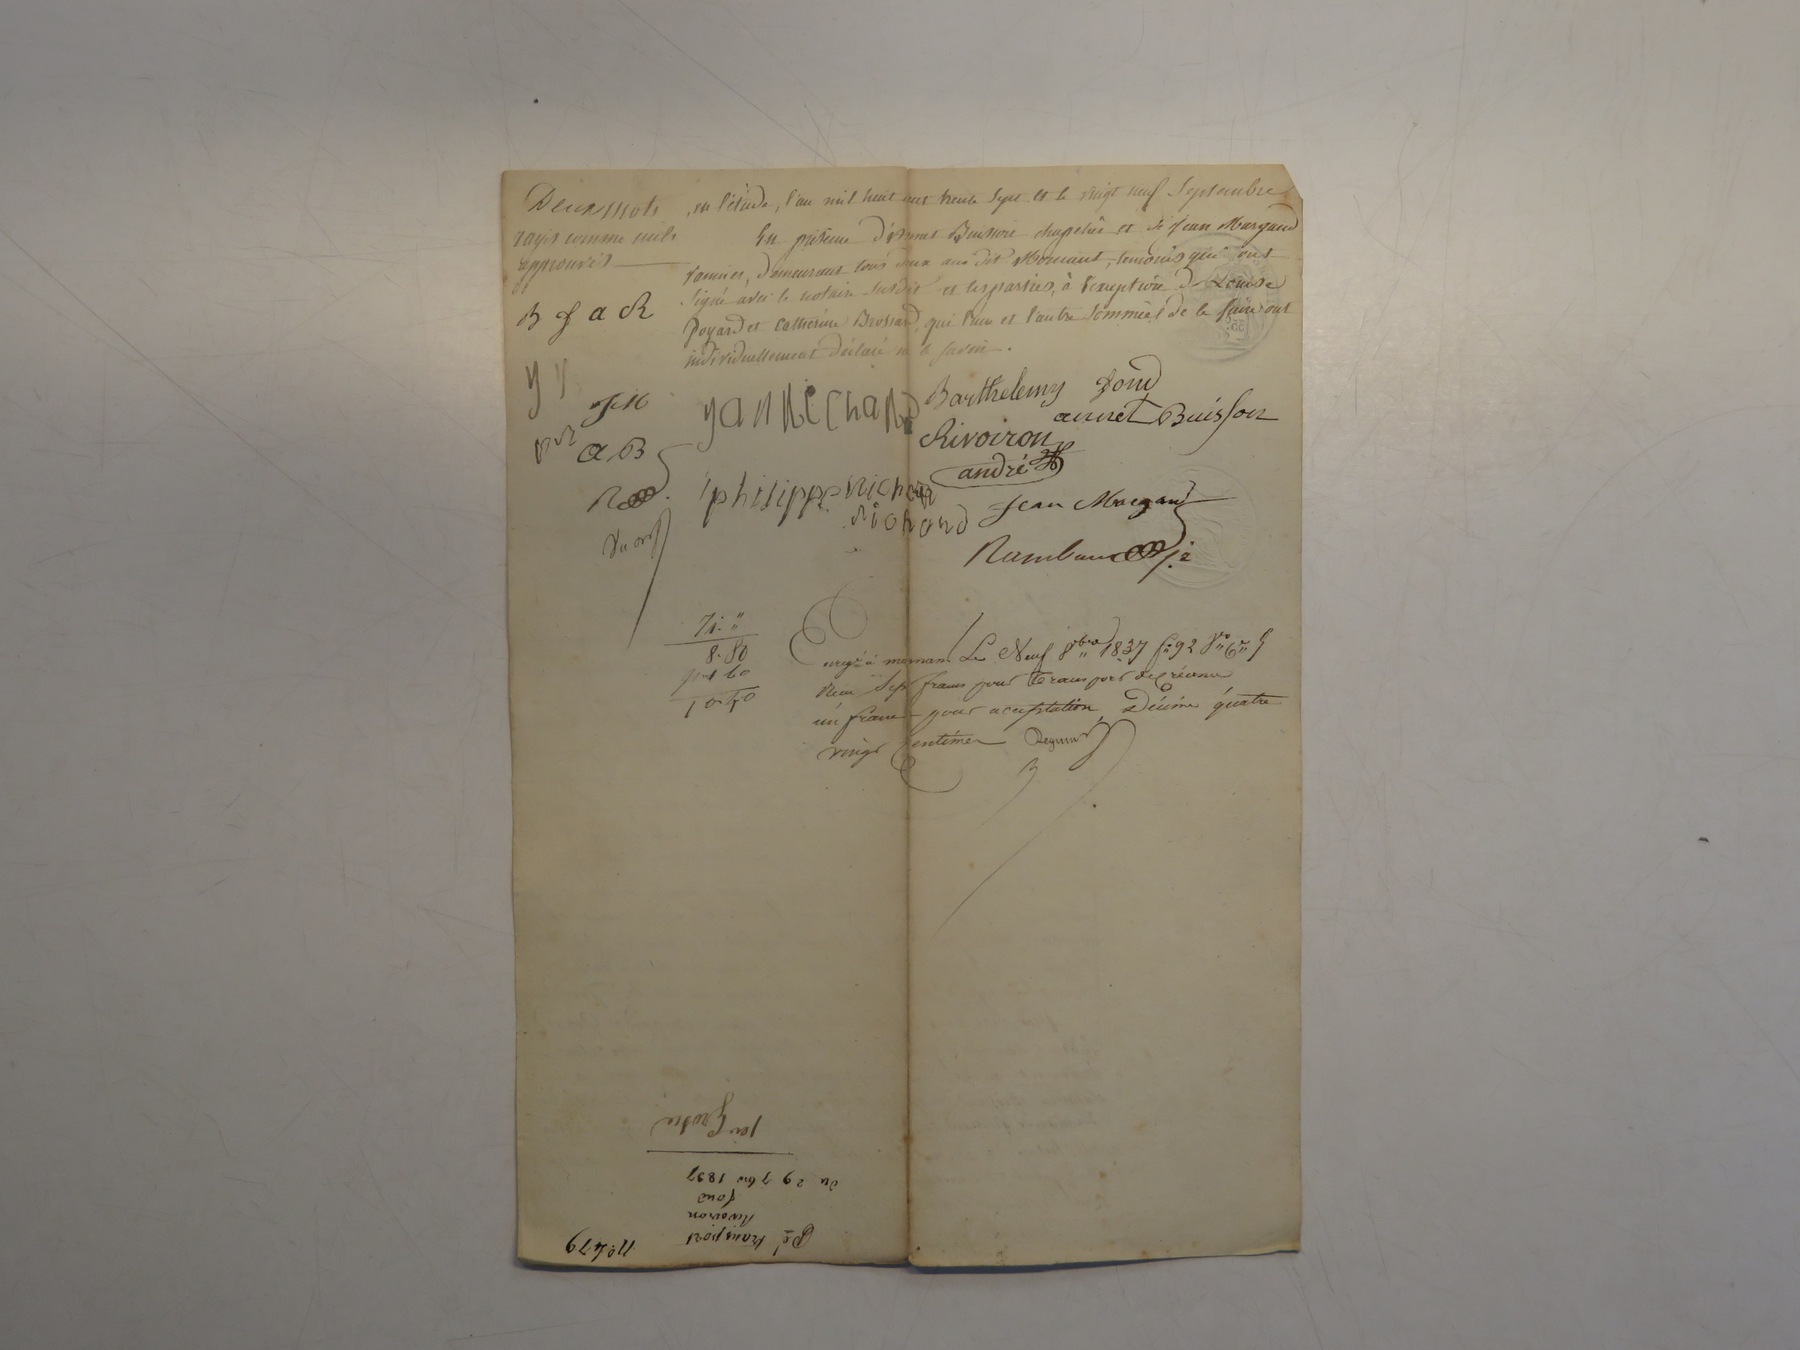 Deux mots
rayés comme nuls
approuvés
B f a R
, en l'étude, l'an mil huit cent trente sept et le vingt neuf Septembre
En présence d'annet Buisson chapelier et de Jean Margand
demeurant tous deux au dit Mornant, témoins qui ont
signé avec le notaire susdit et les parties, à l'exception de Louise
Poyard et Catherine Brossard, qui l'une et l'autre sommées de le faire ont
individuellement déclaré ne le savoir.
Barthelemy fond
annet Buisson
Rivoiron
andré
A B
philippe Richard
Richard
Jean Margand
8.80
10.40
à mornant Le Neuf 8bre 1837 f° 92
Reçu Sept francs pour transport de créance
un franc pour acceptation, Décime quatre
vingt Centimes
1ère Grosse
du 29 7bre 1837
fond
Rivoiron
transport
N° 479